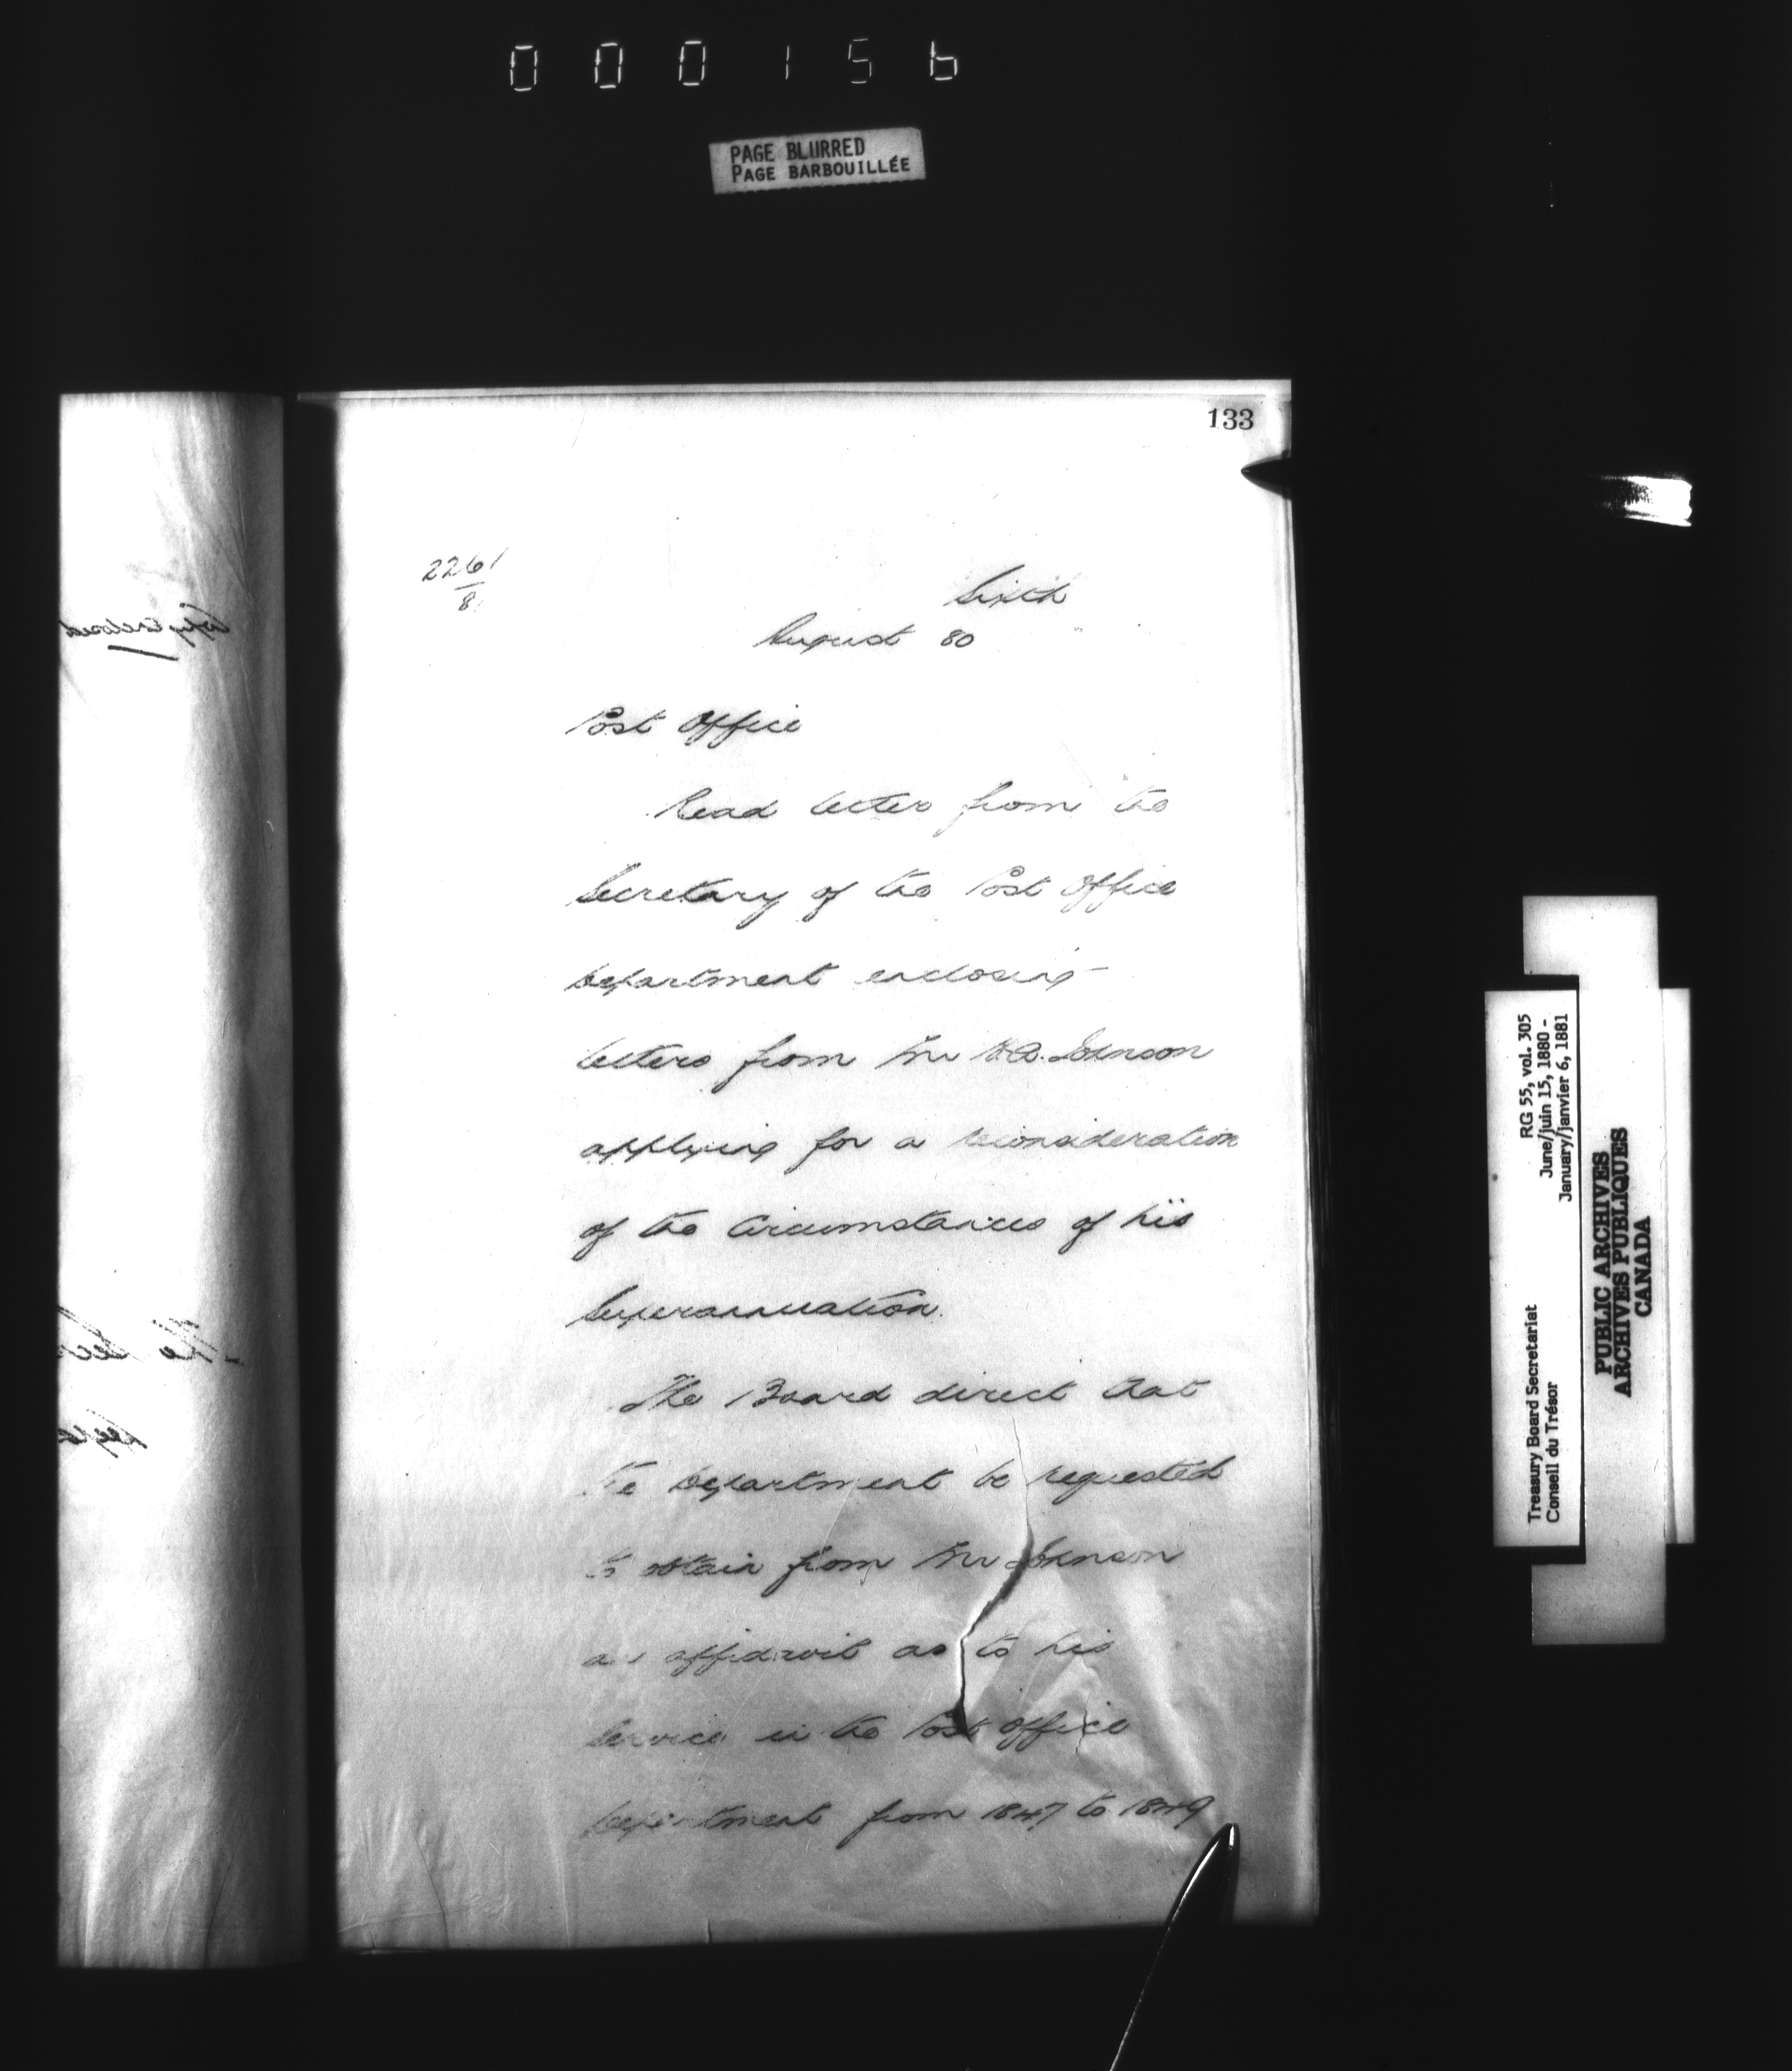 000156
PAGE BLURRED
PAGE BARBOUILLÉE
133
2261
8
Sixth
August 80
Post Office
Read letter from the
Secretary of the Post Office
Department enclosing
letters from Mr Johnson
applying for a reconsideration
of the Circumstances of his
Superannuation.
The Board direct that
the Department be requested
to obtain from Mr Johnson
an affidavit as to his
Service in the Post Office
Department from 1847 to 1849
Copy Enclosed
The Sec
RG 55, vol. 305
June/juin 15, 1880 -
January/janvier 6, 1881
Treasury Board Secretariat
Conseil du Trésor
PUBLIC ARCHIVES
ARCHIVES PUBLIQUES
CANADA